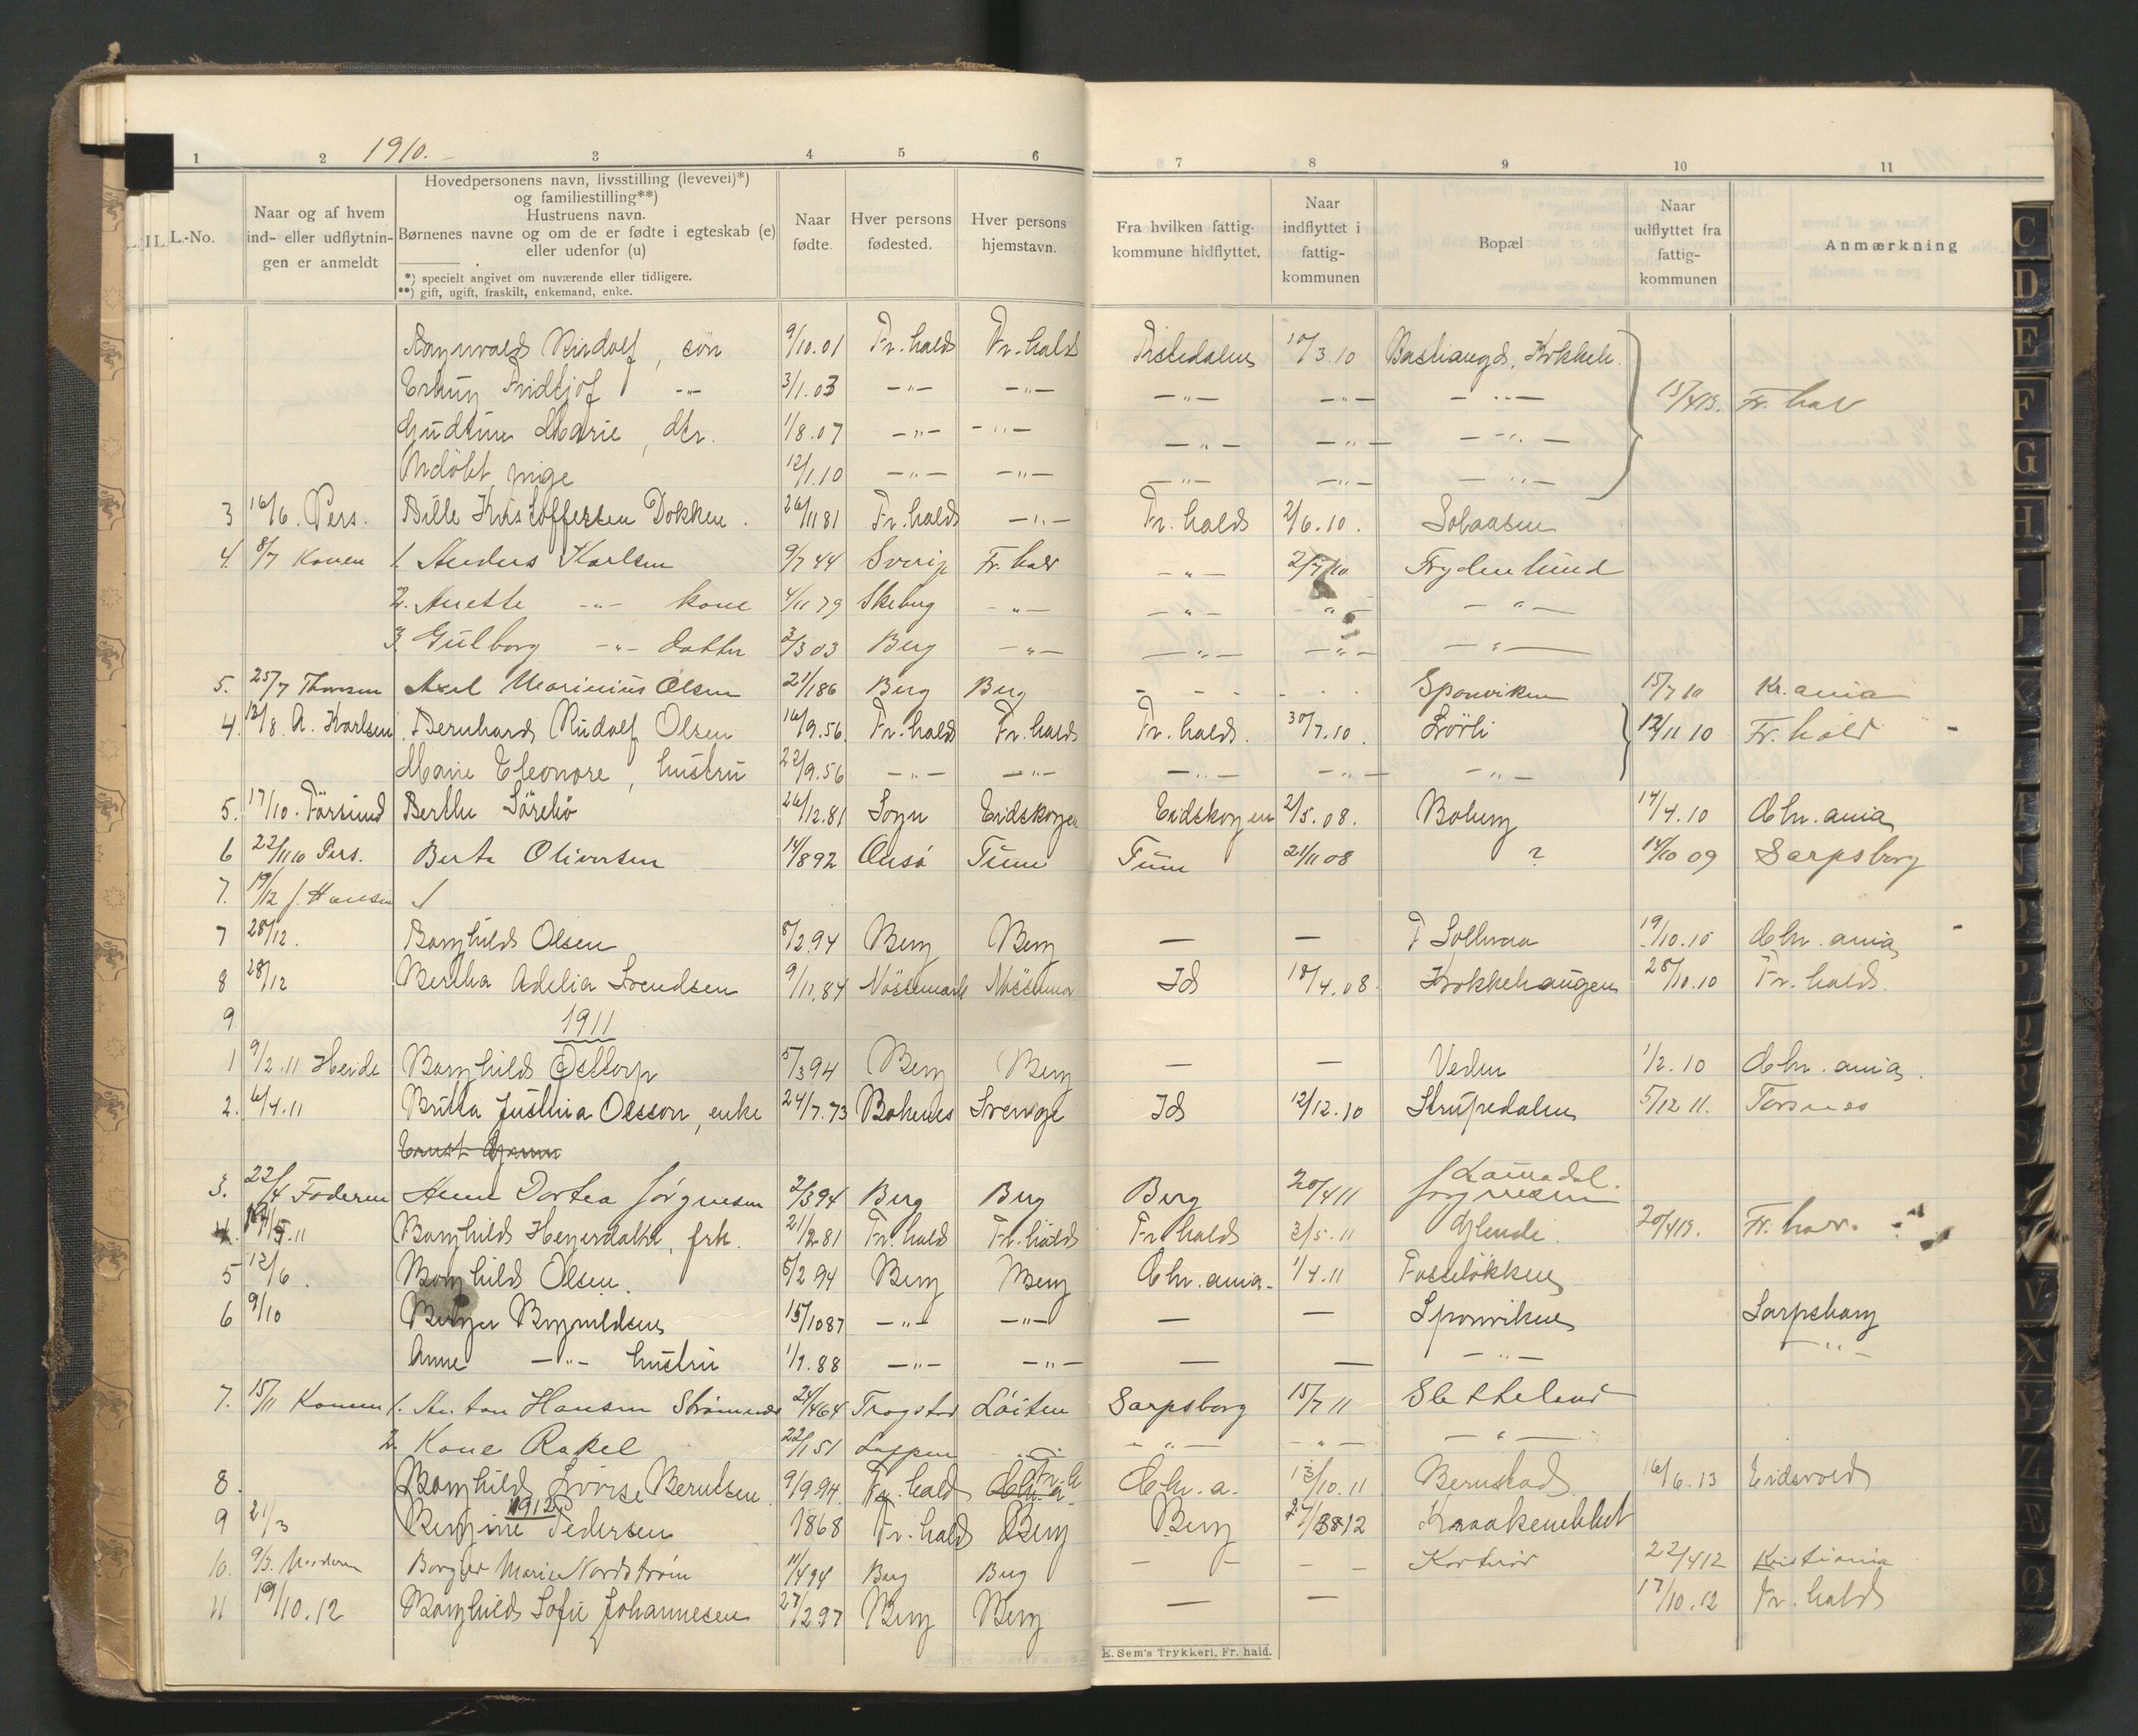 1910.
1 2 3 4 5 6 7 8 9 10 11
L.-No.
Naar og af hvem ind- eller udflytnin- gen er anmeldt
Hovedpersonens navn, livsstilling (levevei)*) og familiestilling**) Hustruens navn. Børnenes navne og om de er fødte i egteskab (e) eller udenfor (u)
*) specielt angivet om nuværende eller tidligere.
**) gift, ugift, fraskilt, enkemand, enke.
Naar fødte.
Hver persons fødested.
Hver persons hjemstavn.
Fra hvilken fattig- kommune hidflyttet.
Naar indflyttet i fattig- kommunen
Bopæl
Naar udflyttet fra fattig- kommunen
Anmærkning
Ragnvald Rudolf, søn 9/10.01 Fr.hald Fr.hald Tistedalen 10/3.10
Erling Fridtjof -"- 3/1.03 -"- -"- -"- -"- -"- 15/4 13. Fr. hald
Gudrun Marie, dtr. 1/8.07 -"- -"- -"- -"- -"-
Udöbt pige 12/1.10 -"- -"- -"- -"- -"-
3 16/6. Pers. Bille Kristoffersen Dokken. 26/11 81 Fr.hald -"- Fr.hald 2/6.10. Solaasen
4. 8/7 Konen 1. Anders Karlsen 9/7 44 Sverig Fr.hald -"- 2/7 10 Frydenlund
2. Anette -"- kone 4/11 79 Skeberg -"- -"- -"- -"-
3. Gulborg -"- datter 3/3 03 Berg -"- -"- -"- -"-
5. 25/7 Thoresen Axel Marinius Olsen 21/1 86 Berg Berg - - - - - Sponviken 15/7 10 Kr.ania
4. 12/8 A. Karlsen Bernhard Rudolf Olsen 16/9.56. Fr.hald Fr.hald Fr.hald. 30/7.10. 12/11 10 Fr. hald
Marie Eleonore, hustru 22/9.56 -"- -"- -"- -"- -"-
5. 17/10. Berthe 26/12.81 Sogn Eidskogen Eidskogen 2/5.08. Boberg 14/4.10 Chr.ania
6 22/11 10 Pers. Berte Oliversen 14/8 92 Onsö Tune Tune 21/11 08 ? 14/10 09 Sarpsborg
7. 19/12 J. Hansen
7 28/12. Borghild Olsen 8/2.94 Berg Berg — — 19/10.10 Chr.ania
8 28/12 Bertha Adelia Svendsen 9/11.84 Nössemark Id 18/4.08 Krokkehaugen 28/10.10 Fr.hald.
9. 1911
1 9/2.11 Heide Borghild Osttorp 5/3 94 Berg Berg — — Veden 1/2.10 Chr.ania.
2. 6/4.11 Britta Justina Olsson, enke 24/7.73 Bohenes Sverige Id 12/12.10 Strupedalen 5/12 11. Torsnes
3. 22/4 Faderen Dortea Jörgensen 2/3 94 Berg Berg Berg 20/4 11 Jörgensen
4. Borghild Heyerdahl, frk. 21/2 81 Fr.hald Fr.hald Fr.hald 3/5.11 Glende. 20/4 13. Fr.hald.
5 12/6. Borghild Olsen. 8/2 94 Berg Berg Chr.ania. 1/4.11 Fosselökken
6 9/10 Birger Brynildsen 15/10 87 -"- -"- — — Sponviken Sarpsborg
Anne -"- hustru 1/9.88 -"- -"- — — -"- -"-
7. 15/11 Konen 1. Anton Hansen 24/4 64 Trogstad Löiten Sarpsborg 15/7 11
2. Kone Rakel 22/1 51 -"- -"- -"- -"-
8. Borghild Lovise Berntsen. 9/9 94. Fr.hald Chr.a. Fr.h Chr.a. 13/10.11 Bernstad. 16/6.13 Eidsvold
1912
9 21/3 Bergine Pedersen 1868 Fr.hald Berg Berg
10. 9/3. Moderen Borger Marie Nordström 11/4 94 Berg Berg — — 22/4 12 Kristiania
11 19/10.12 Borghild Sofie Johannesen 27/2 97 Berg Berg — — 17/10.12 Fr.hald
E. Sem's Trykkeri, Fr. hald.
C
D
E
F
G
H
I
J
K
V
X
Y
Z
Ø